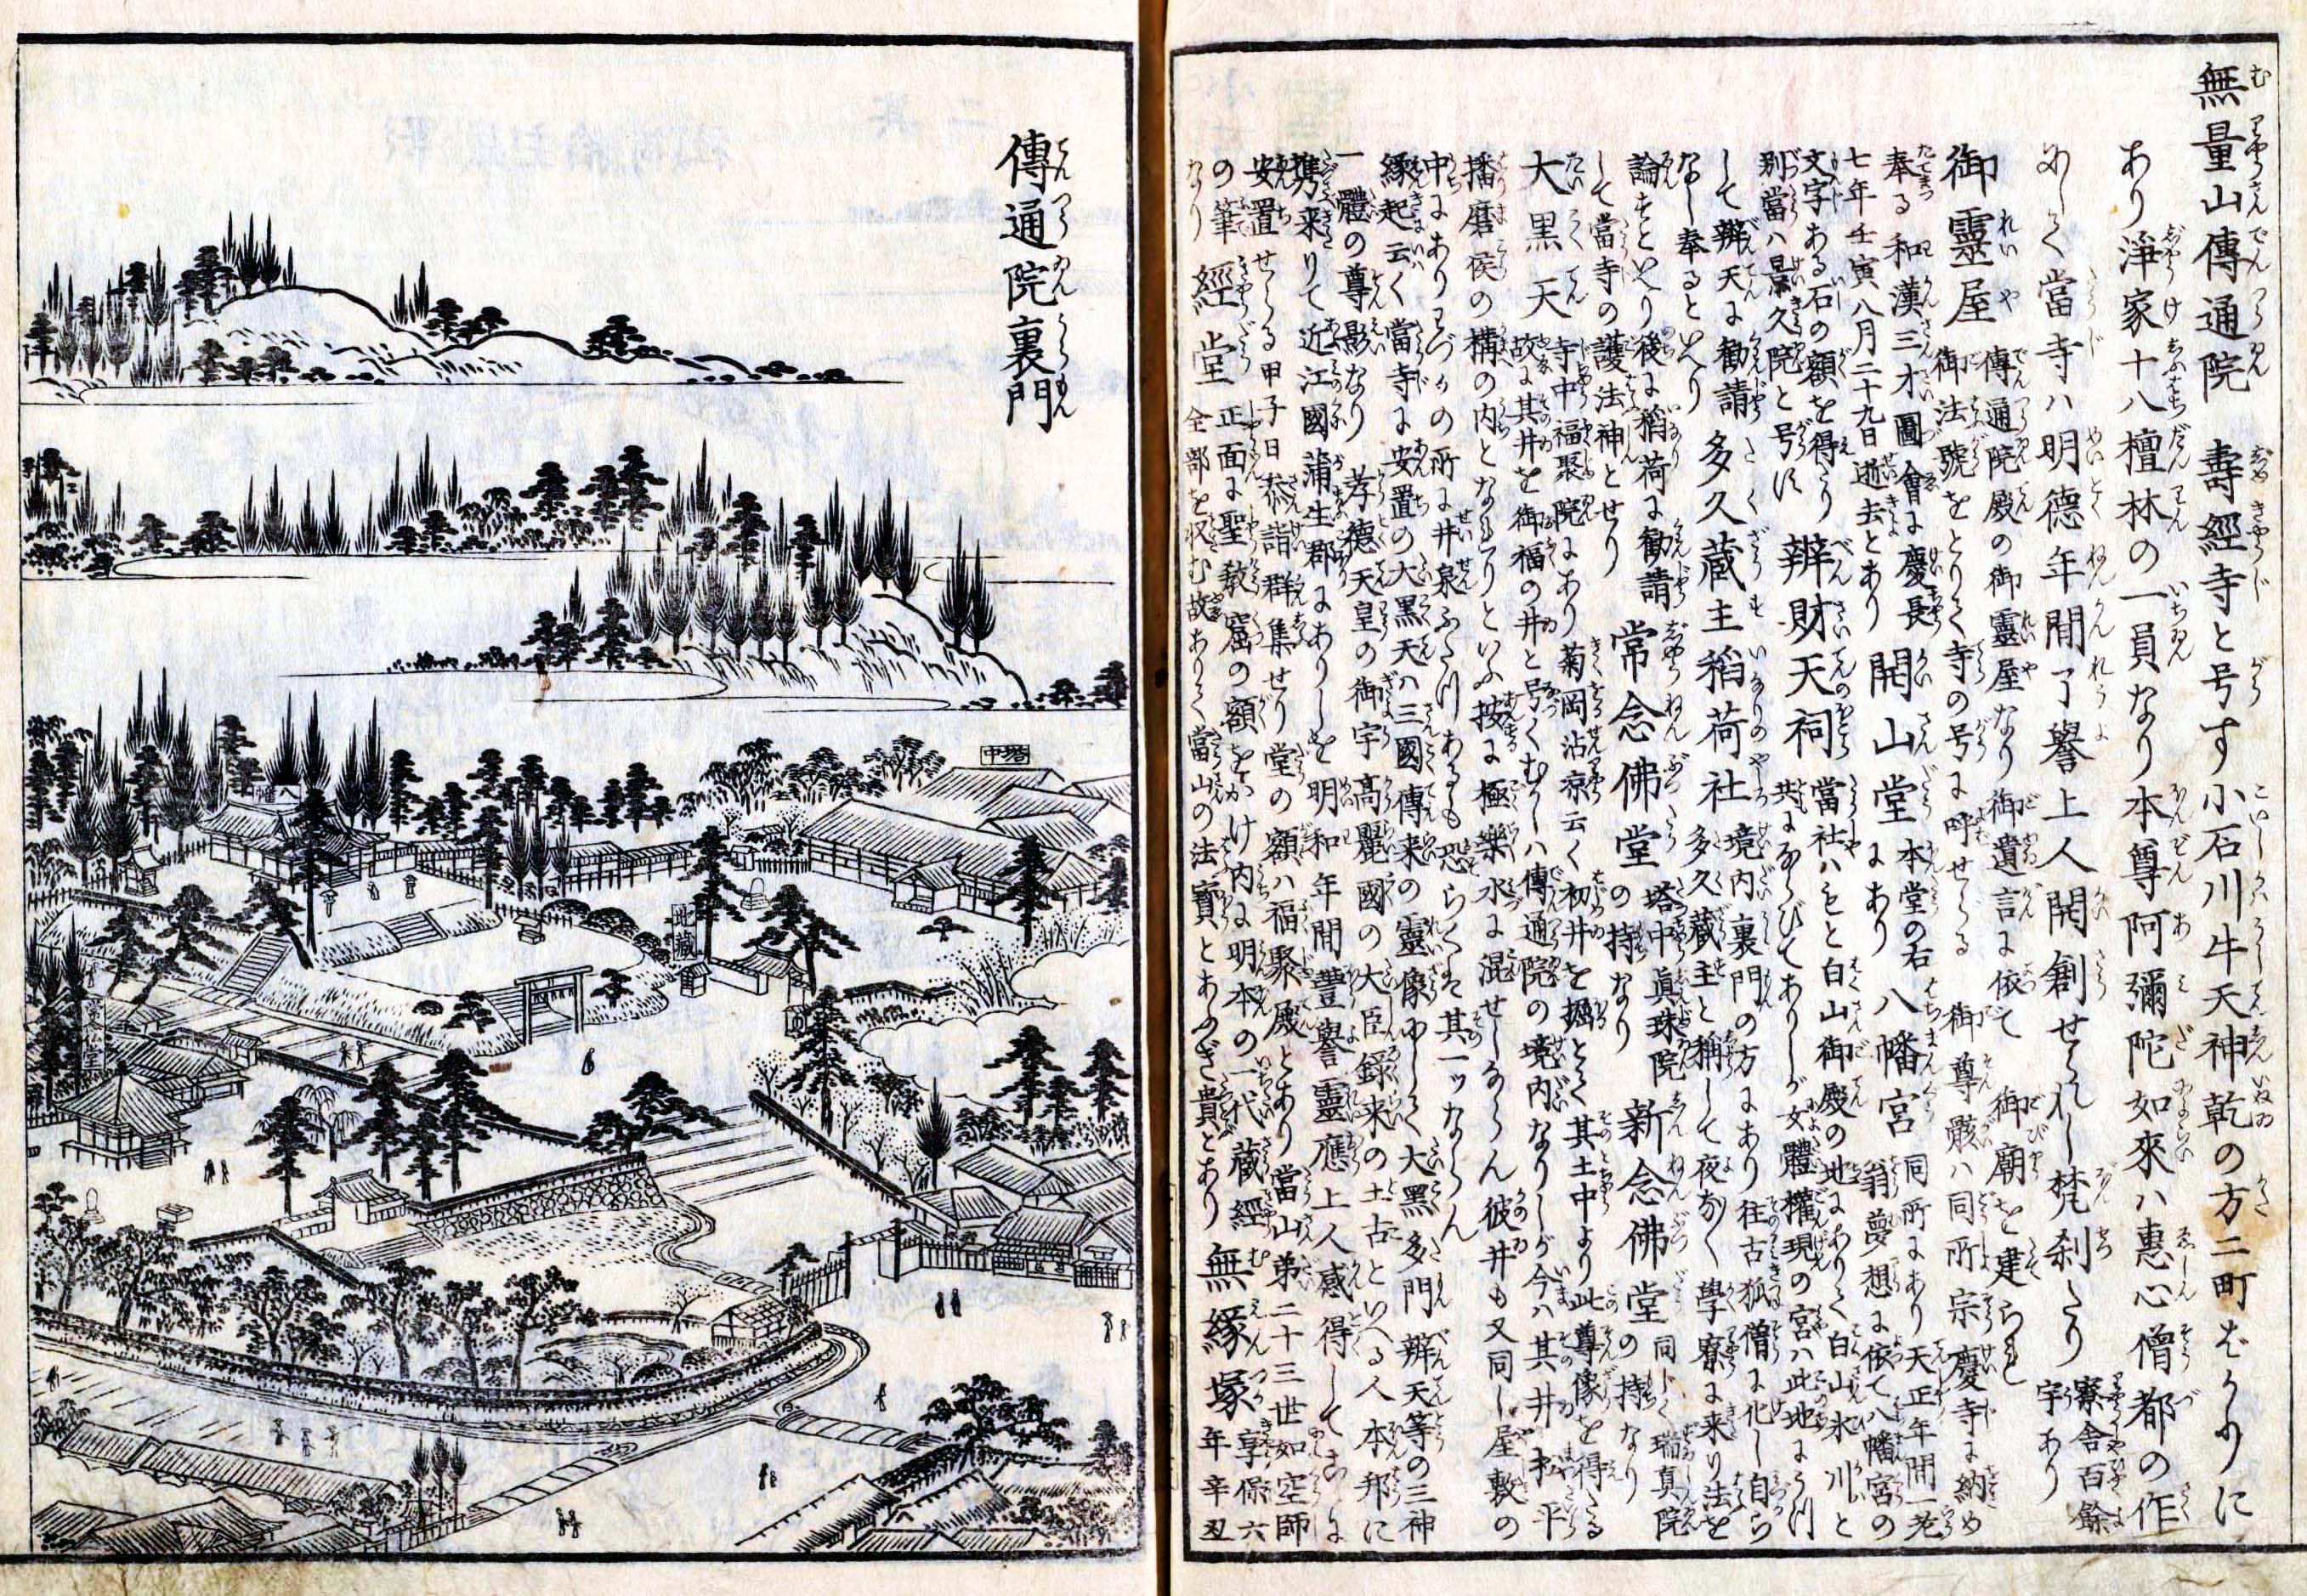 無量山傳通院 壽經寺と号す小石川牛天神乾の方二町ばかりに
あり淨家十八檀林の一員なり本尊阿彌陀如來ハ惠心僧都の作
にして當寺ハ明德年間了譽上人開創せられし梵刹たり 寮舎百餘
宇あり
御靈屋 傳通院殿の御靈屋なり御遺言に依て 御廟を建られ
御法號をとりて寺の号に呼せらる 御尊骸ハ同所宗慶寺に納め
奉る和漢三才圖會に慶長
七年壬寅八月二十九日逝去とあり
開山堂 本堂の右
にあり
八幡宮 同所にあり天正年間一老
翁夢想に依て八幡宮の
文字ある石の額を得たり
別當ハ景久院と号す
辨財天祠 當社ハもと白山御殿の地にありて白山氷川と
共にならびてありしが女體權現の宮ハ此地にうつ
して辨天に勧請
なし奉るといへり
多久蔵主稲荷社 境内裏門の方にあり往古狐僧に化し自ら
多久蔵主と稱して夜々學寮に来り法を
論をといへり後に稲荷に勧請
して當寺の護法神とせり
常念佛堂 塔中眞珠院
の持なり
新念佛堂 同じく瑞真院
の持なり
大黒天 寺中福聚院にあり菊岡沾凉云く初井を掘とて其土中より此尊像を得たる
故に其井を御福の井と号くむかしハ傳通院の境内なりしが今ハ其井松平
播磨侯の構の内となれりといふ按に極樂水に混せしならん彼井も又同し屋敷の
中にありてづれの所に井泉ふたつあるも恐らくは其一ッならん
縁起云く當寺に安置の大黒天ハ三國傳来の靈像にして大黒多門辨天等の三神
一體の尊影なり 孝德天皇の御宇高麗國の大臣録来の土古といへる人本邦に
携来りて近江國蒲生郡にありしを明和年間豊譽靈應上人感得してこゝに
安置せらる甲子日参詣群集せり堂の額ハ福聚殿とあり當山第二十三世如空師
の筆
なり
經堂 正面に聖教窟の額をかけ内に明本の一代蔵經
全部を収む故ありて當山の法寳とあふぎ貴とあり
無縁塚 享保六
年辛丑
傳通院裏門
中塔
八幡
地蔵
裏門